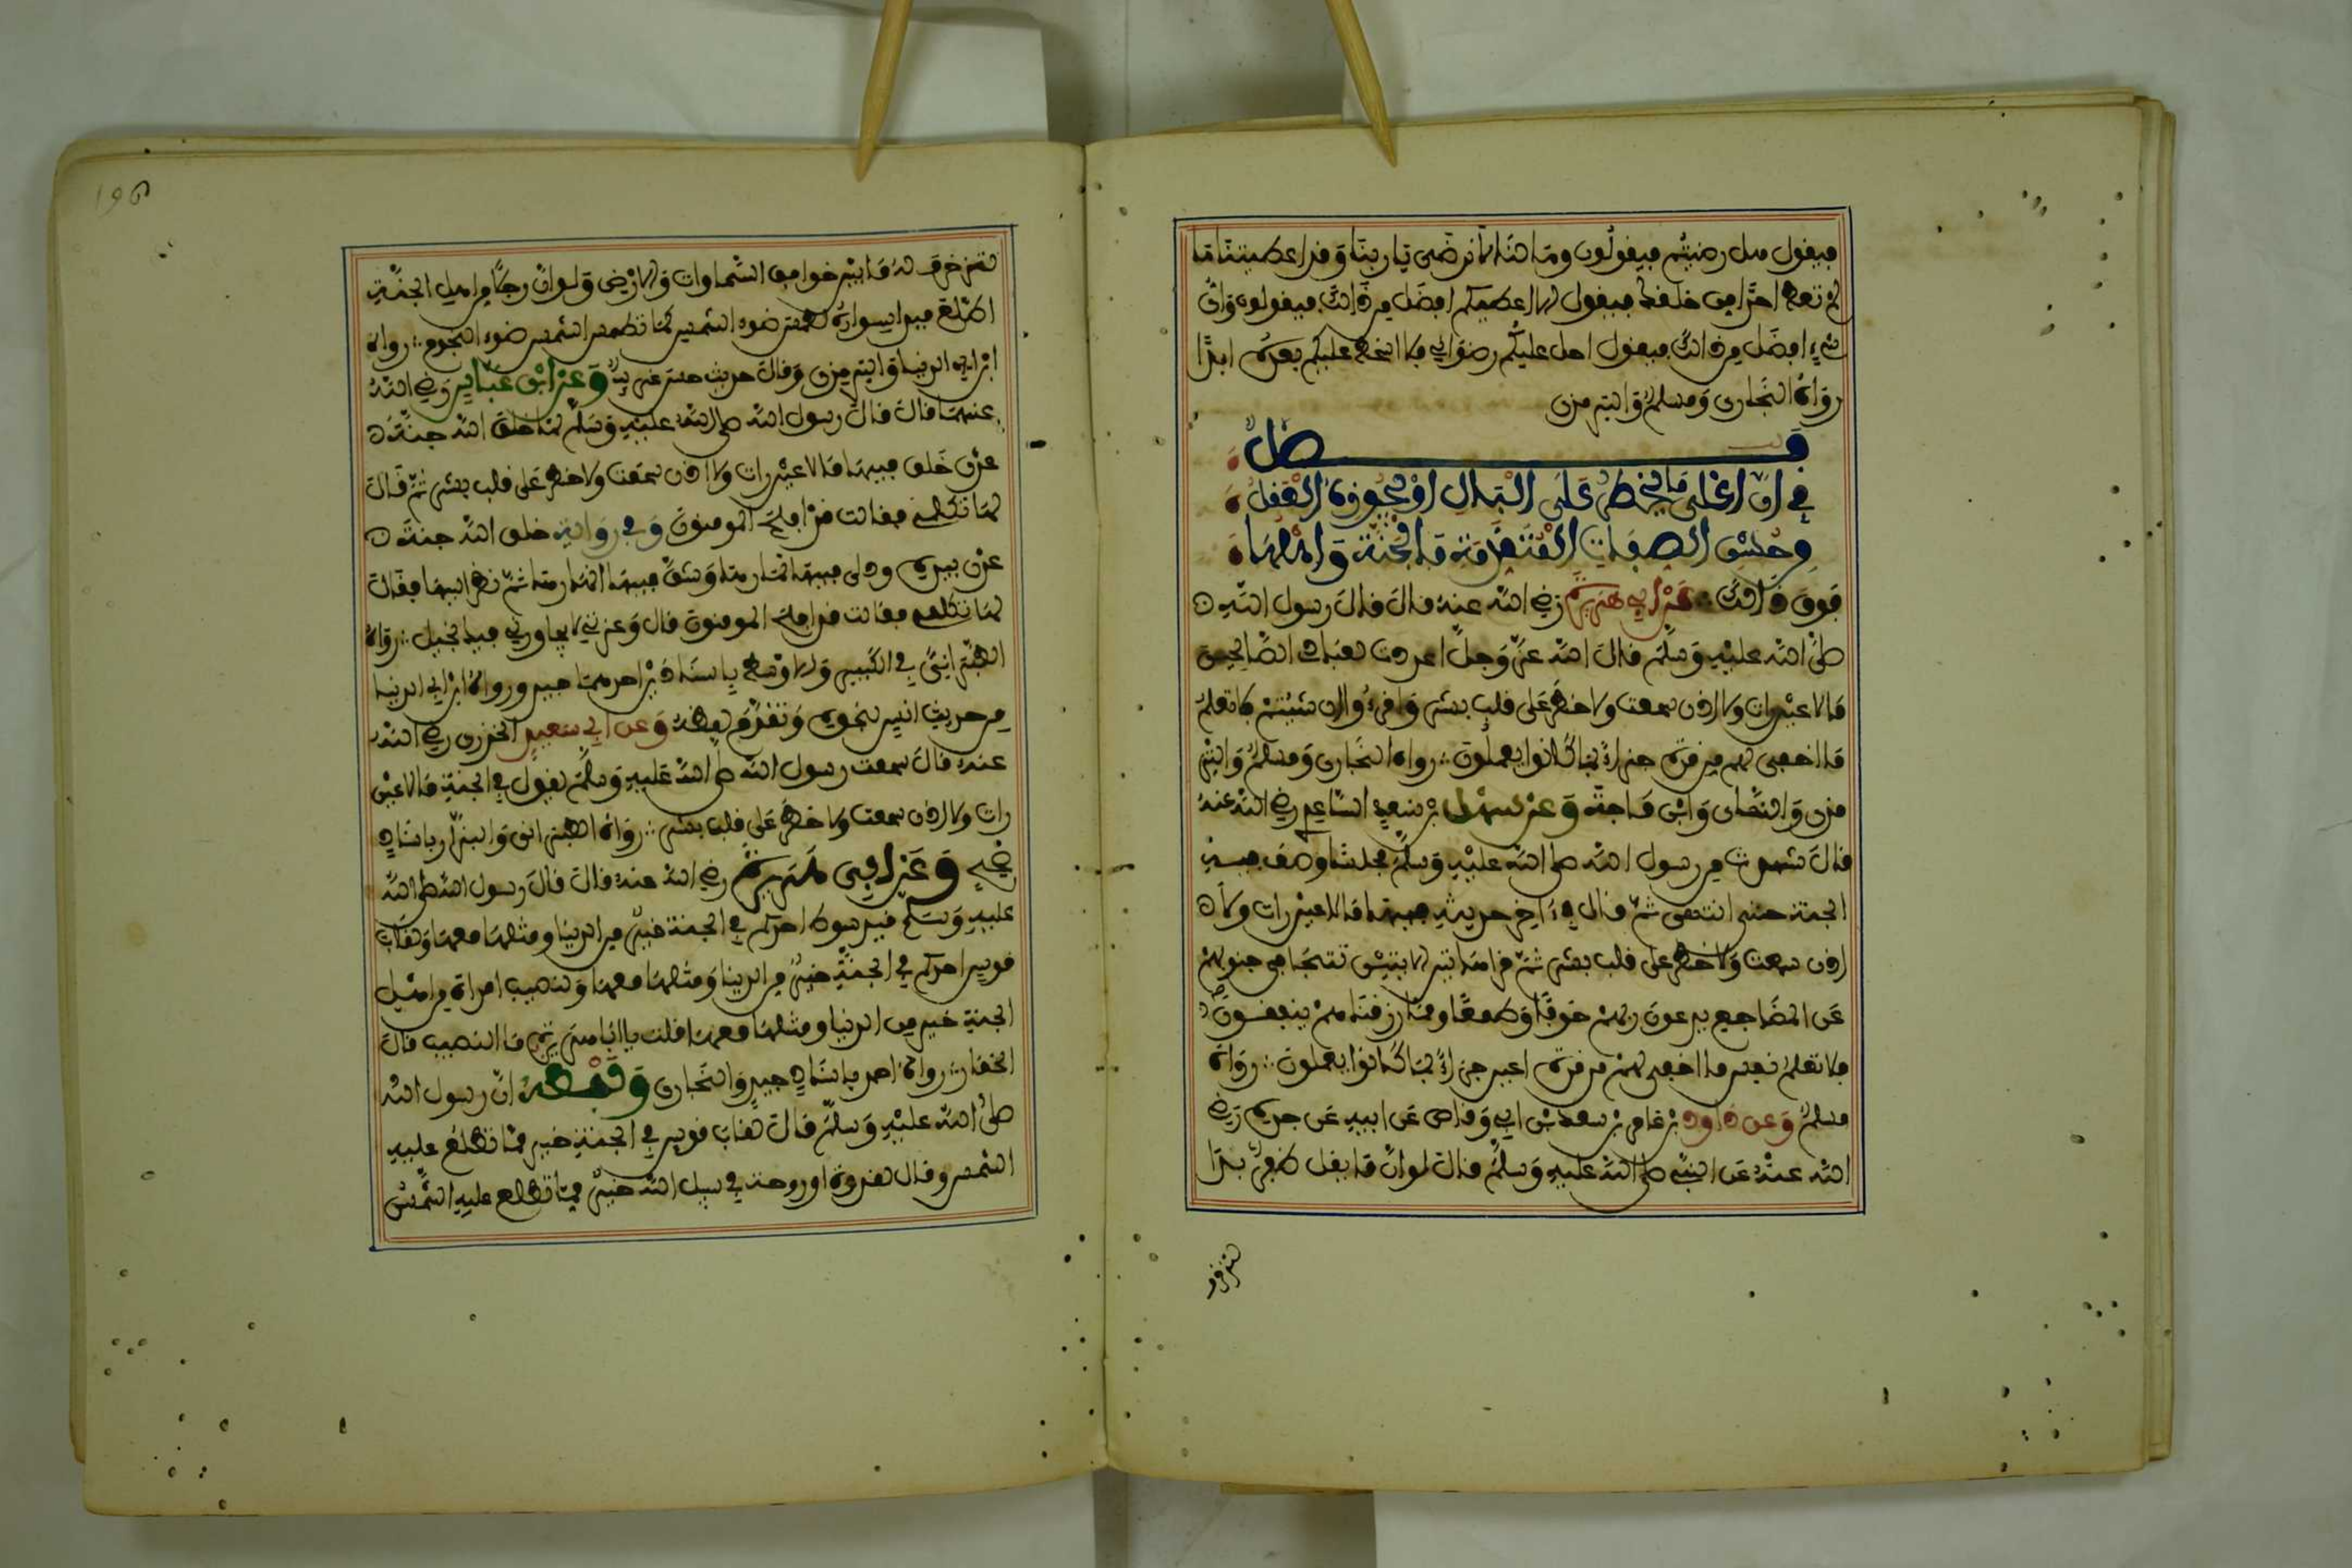 فيقول هل رضيتم فيقولون وما لنا لا نرضى يا ربنا وقد اعطيتنا ما
لم تعط احدا من خلقك فيقول الا اعطيكم افضل من ذالك فيقولون واي
شيء افضل من ذالك فيقول احل عليكم رضواني فلا اسخط عليكم بعده ابدا
رواه البخاري ومسلم والترمذي
فصل
في ان اعلى ما يخطر على البال او يجوزه العقل
من حسن الصفات المتقدمة فالجنة واهلها
فوق ذالك عن ابي هريرة رضي الله عنه قال قال رسول الله
صلى الله عليه وسلم قال الله عز وجل اعددت لعبادي الصالحين
ما لا عين رات ولا اذن سمعت ولا خطر على قلب بشر واقرءوا ان شيتم فلا تعلم
ما اخفي لهم من قرة جزاء بما كانوا يعملون رواه البخاري ومسلم والتر
مذي والنساي وابن ماجة وعن سهل بن سعد الساعدي رضي الله عنه
قال شهدت من رسول الله صلى الله عليه وسلم مجلسا وصف فيه
الجنة حتى انتهى ثم قال في ءاخر حديثه فيها ما لا عين رات ولا
اذن سمعت ولا خطر على قلب بشر ثم قرا هاتين الايتين تتجافى جنوبهم
عن المضاجع يدعون ربهم خوفا وطمعا ومما رزقناهم ينفقون
فلا تعلم نفس ما اخفي لهم من قرة اعين جزاء بما كانوا يعملون رواه
مسلم وعن داود بن عامر بن سعد بن ابي وقاص عن ابيه عن جده رضي
الله عنه عن النبي صلى الله عليه وسلم قال لو ان ما يقل ظفر بدا
لتزخرف
196
لتزخرف له ما بين خوافق السماوات والارض ولو ان رجلا من اهل الجنة
اطلع فبدا سواره لطمس ضوء الشمس كما تطمس الشمس ضوء النجوم رواه
ابن ابي الدنيا والترمذي وقال حديث حسن غريب وعن ابن عباس رضي الله
عنهما قال قال رسول الله صلى الله عليه وسلم لما خلق الله جنة
عدن خلق فيها ما لا عين رات ولا اذن سمعت ولا خطر على قلب بشر ثم قال
لها تكلمي فقالت قد افلح المومنون وفي رواية خلق الله جنة
عدن بيده ودلى فيها ثمارها وشق فيها انهارها ثم نظر اليها فقال
لها تكلمي فقالت قد افلح المومنون قال وعزتي لا يجاورني فيك بخيل رواه
الطبراني في الكبير والاوسط باسناد بن احدهما جيد ورواه ابن ابي الدنيا
من حديث انس بنحوه وتقدم لفظه وعن ابي سعيد الخدري رضي الله
عنه قال سمعت رسول الله صلى الله عليه وسلم يقول في الجنة ما لا عين
رات ولا اذن سمعت ولا خطر على قلب بشر رواه الطبراني والبزار باسناد
صحيح وعن ابي هريرة رضي الله عنه قال قال رسول الله صلى الله
عليه وسلم قيد سوط احدكم في الجنة خير من الدنيا ومثلها معها ولقاب
قوس احدكم في الجنة خير من الدنيا ومثلها معها ولنصيف امراة من اهل
الجنة خير من الدنيا ومثلها معها قلت يا ابا هريرة ما النصيف قال
الخمار رواه احمد باسناد جيد والبخاري ولفظه ان رسول الله
صلى الله عليه وسلم قال لقاب قوس في الجنة خير مما تطلع عليه
الشمس وقال لغدوة او روحة في سبيل الله خير مما تطلع عليه الشمس